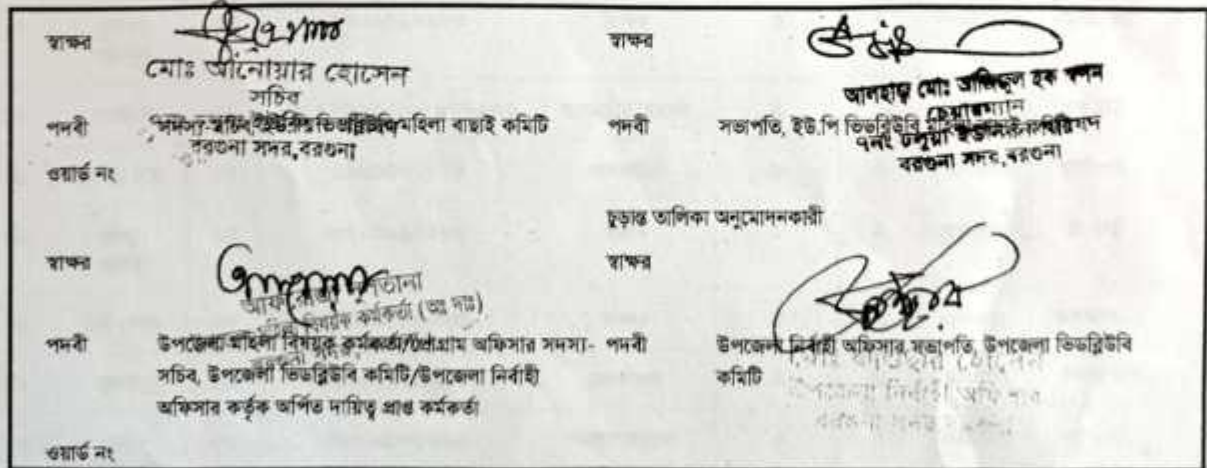 স্বাক্ষর
মোঃ আনোয়ার হোসেন
সচিব
পদবী সদস্য-সচিব, ইউ.পি ভিডব্লিউবি মহিলা বাছাই কমিটি
বরগুনা সদর, বরগুনা
ওয়ার্ড নং
স্বাক্ষর
আলহাজ্ব মোঃ আজিজুল হক স্বপন
চেয়ারম্যান
পদবী সভাপতি, ইউ.পি ভিডব্লিউবি
৭নং ঢলুয়া ইউনিয়ন পরিষদ
বরগুনা সদর, বরগুনা
চুড়ান্ত তালিকা অনুমোদনকারী
স্বাক্ষর
বিষয়ক কর্মকর্তা (অঃ দাঃ)
পদবী উপজেলা মহিলা বিষয়ক কর্মকর্তা/প্রোগ্রাম অফিসার সদস্য-
সচিব, উপজেলা ভিডব্লিউবি কমিটি/উপজেলা নির্বাহী
অফিসার কর্তৃক অর্পিত দায়িত্ব প্রাপ্ত কর্মকর্তা
ওয়ার্ড নং
স্বাক্ষর
পদবী উপজেলা নির্বাহী অফিসার সভাপতি, উপজেলা ভিডব্লিউবি
কমিটি
উপজেলা নির্বাহী অফিসার